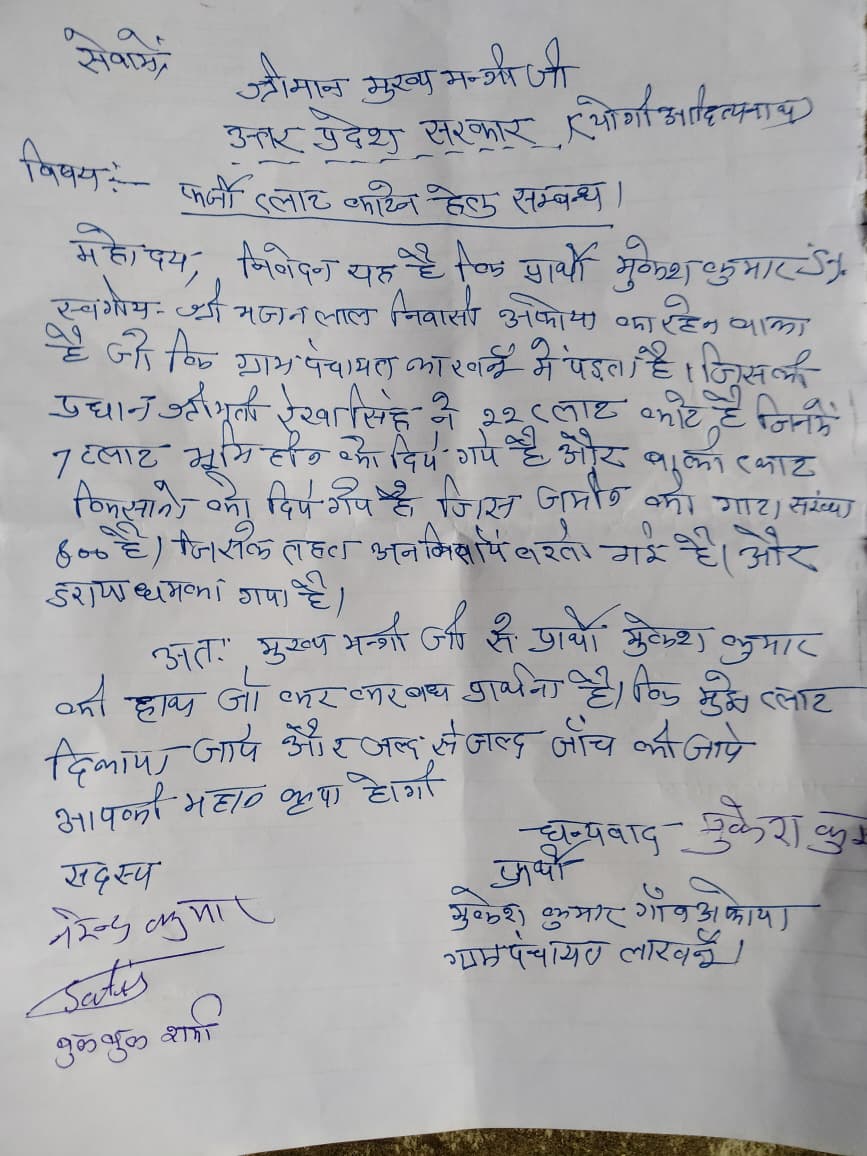 सेवामें,
श्रीमान मुख्य मन्त्री जी
उत्तर प्रदेश सरकार (योगी आदित्यनाथ)
विषय:- फर्जी प्लाट काटने हेतु सम्बन्ध।
महोदय, निवेदन यह है कि प्रार्थी मुकेश कुमार S/
स्वर्गीय श्री भजन लाल निवासी अकोया का रहने वाला
है जो कि ग्राम पंचायत में पड़ता है। जिसकी
प्रधान श्रीमती रेखा सिंह ने २२ प्लाट काटे है जिनमें
7 प्लाट भूमिहीन को दिये गये है और बाकी प्लाट
किसानो को दिये गये है जिस जमीन की गाटा संख्या
600 है। जिसके तहत बरती गई है। और
डराया धमका गया है।
अतः मुख्य मन्त्री जी से प्रार्थी मुकेश कुमार
की हाथ जो कर करबध प्रार्थना है। कि मुझे प्लाट
दिलाया जाये और जल्द से जल्द जाँच की जाये
आपकी महान कृपा होगी
धन्यवाद मुकेश कु
सदस्य प्रार्थी
नरेन्द्र कुमार मुकेश कुमार गाँव अकोया
Satis ग्राम पंचायत
शर्मा